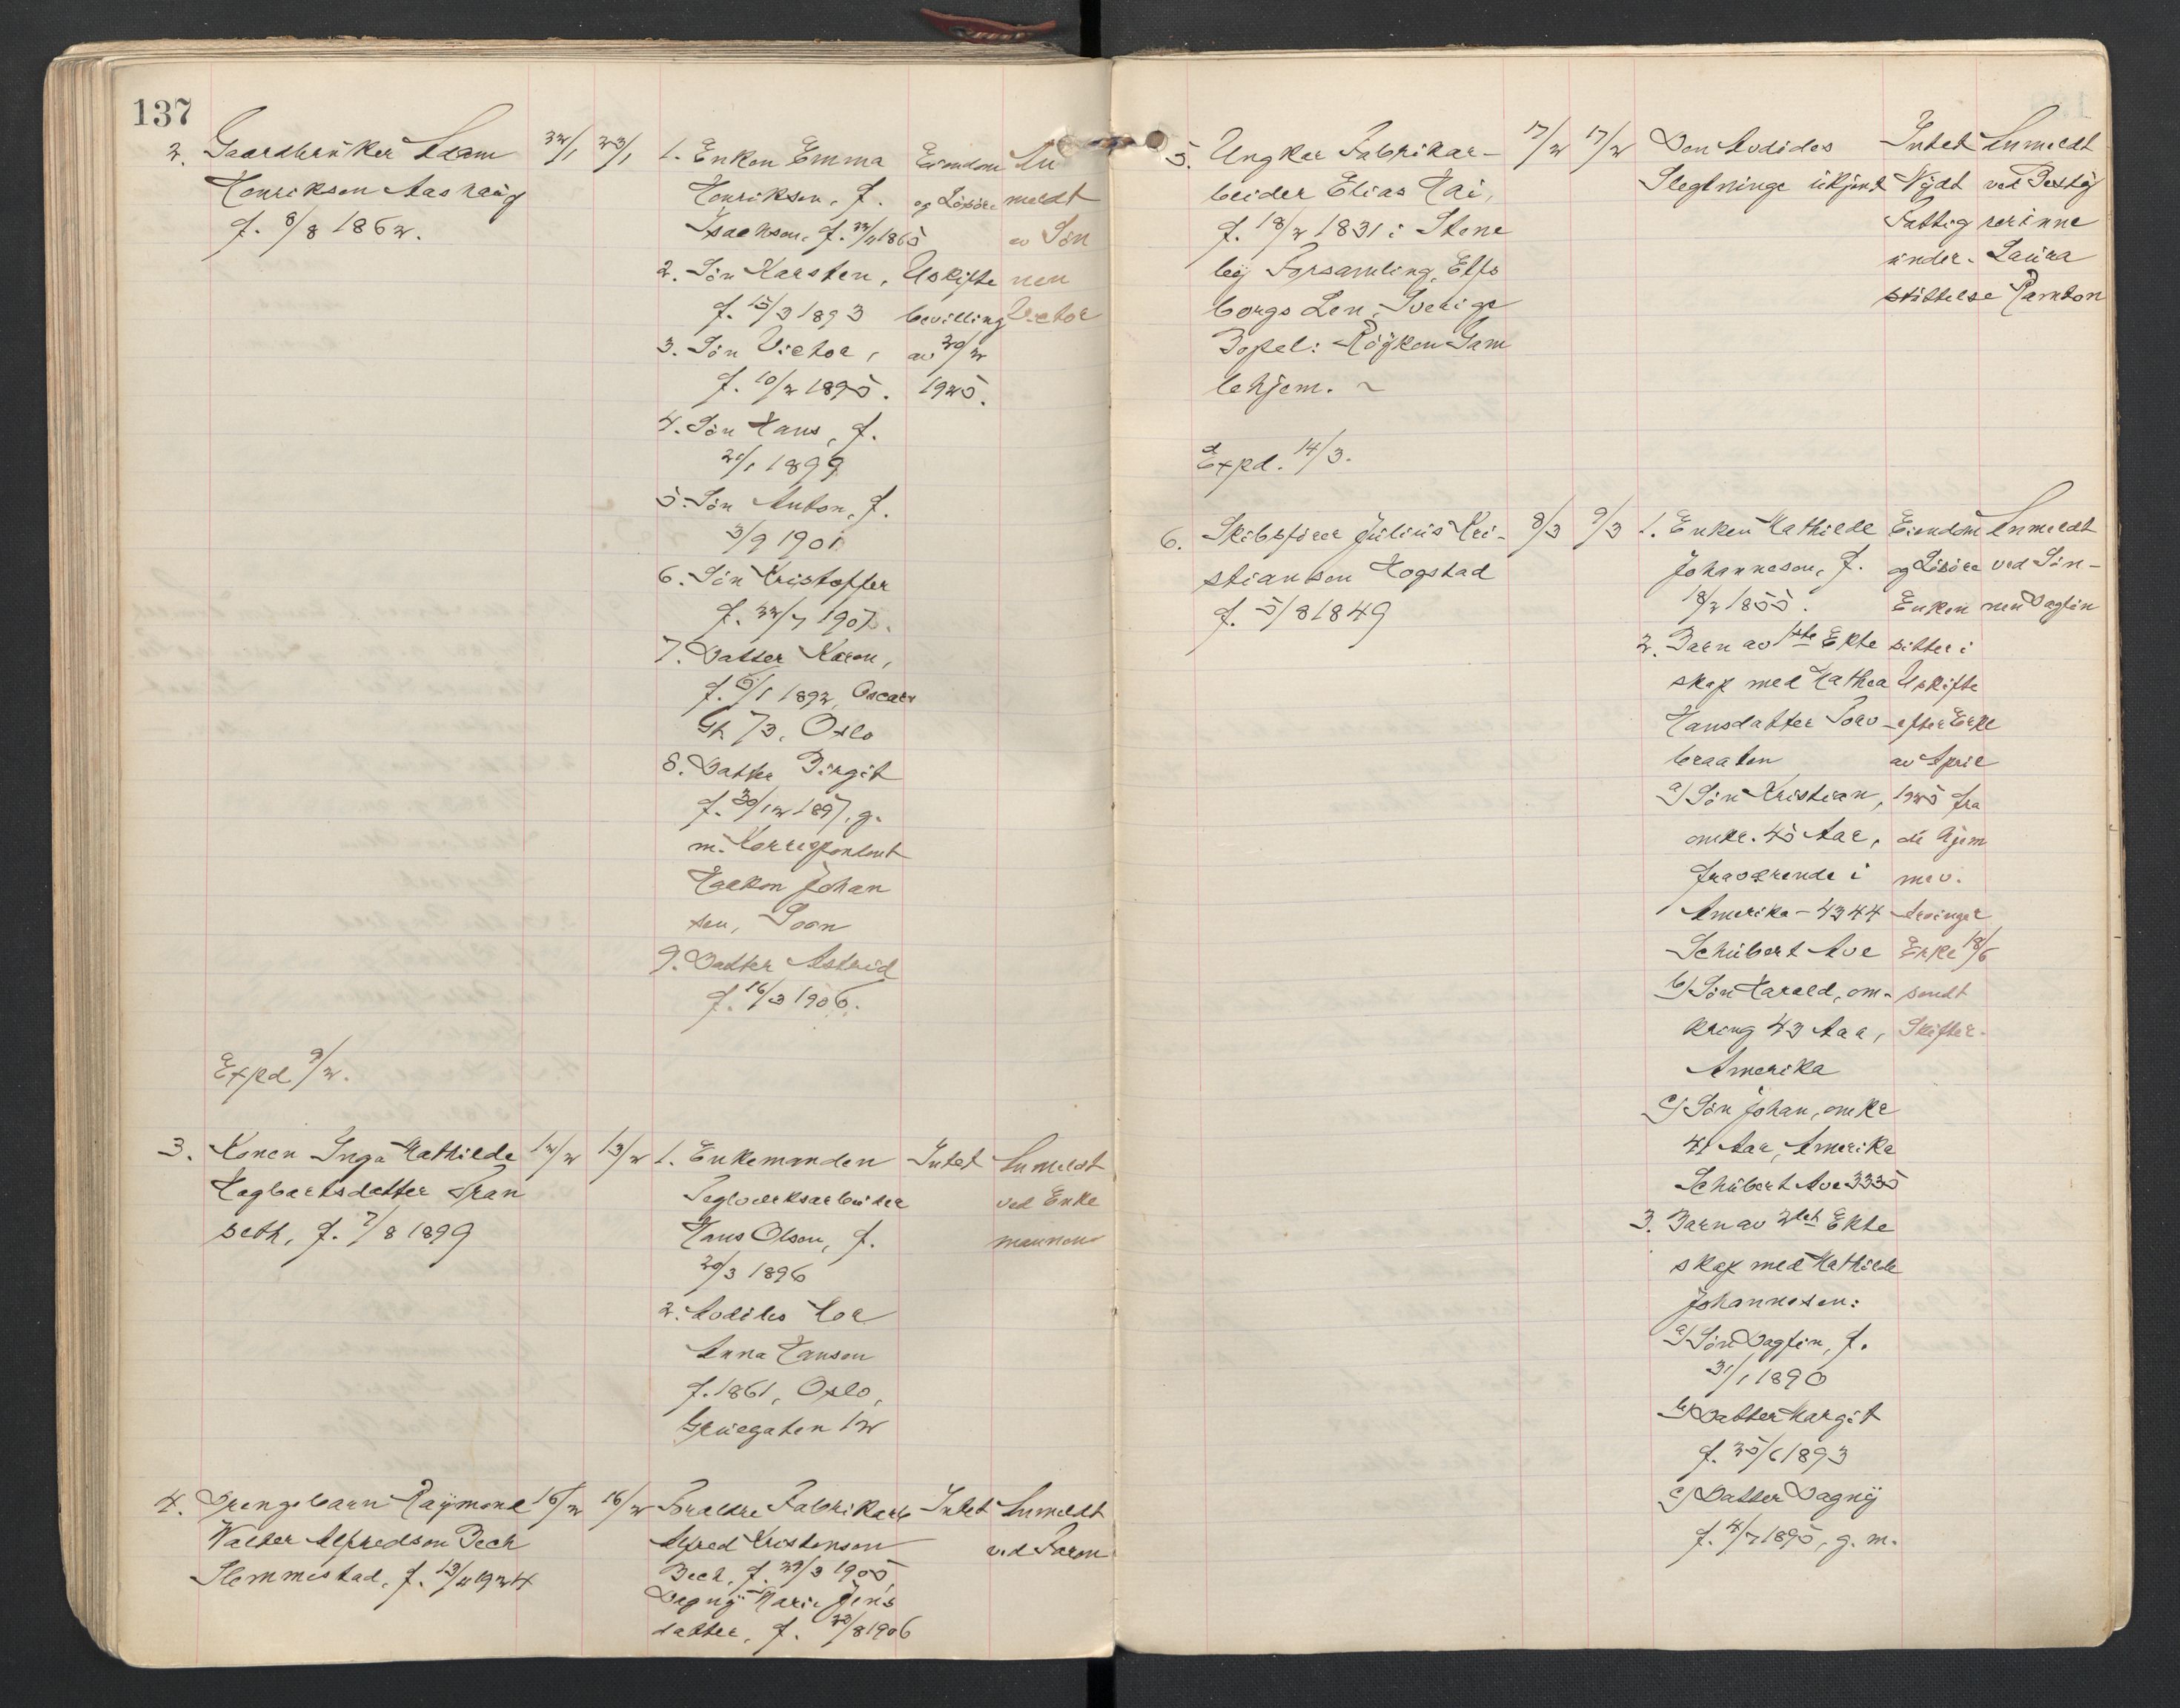 137
2. Gaardbruker Adam
Henriksen Aashaug
f. 8/8 1862.
22/1 23/1
1. Enken Emma
Henriksen, f.
Isachsen, f. 22/2 1865
2. Søn Karsten,
f. 15/3 1893
3. Søn Victor,
f. 10/2 1895.
4. Søn Hans, f.
21/1 1899
5. Søn Anton, f.
3/9 1901
6. Søn Kristoffer
f. 22/7 1907.
7. Datter Karen,
f. 6/1 1892, Oscars
Gt 73, Oslo
8. Datter Birgit
f. 30/12 1897, g.
m. Korrespondent
Haakon Johan
sen, Soon
9. Datter Astrid
f. 16/3 1906.
Eiendom
og Løsøre
Uskifte
bevilling
av 20/2
1925.
An
meldt
av Søn
nen
Victor
Expd. 9/2.
3. Konen Inga Mathilde
Hagbartsdatter Tran
beth, f. 7/8 1899
12/2 13/2
1. Enkemanden
Teglverksarbeider
Hans Olsen, f.
20/3 1896
2. Avdødes Mor
Anna Hansen
f. 1861, Oslo,
Gruegaten 12
Intet
Anmeldt
ved Enke
mannen
4. Drengebarn Raymond
Walter Alfredsen Bech
Slemmestad, f. 13/11 1924
16/2 16/2
Forældre Fabrikarb
Alfred Kristensen
Bech, f. 29/3 1905,
Dagny Marie Jens
datter, f. 22/8 1906
Intet
Anmeldt
ved Faren
5. Ungkar Fabrikar-
beider Elias Kai,
f. 18/2 1831 i Stene
by Forsamling, Elfs
borgs Len, Sverige
Bopel: Røyken Gam
lehjem.
17/2 17/2
Den Avdødes
Slegtninge ukjent
Intet
Nydt
Fattig
under-
støttelse
Anmeldt
ved Besty
rerinne
Laura
Ramton
Expd. 14/3.
6. Skibsfører Julius Kri-
stiansen Hogstad
f. 5/8 1849
8/3 9/3
1. Enken Mathilde
Johannesen, f.
18/2 1855.
2. Barn av 1ste Ekte
skap med Mathea
Hansdatter Torv
braaten
a) Søn Kristian,
omkr. 45 Aar,
fraværende i
Amerika - 4344
Schubert Ave
b) Søn Harald, om-
kring 43 Aar,
Amerika
c) Søn Johan, omkr
41 Aar, Amerika
Schubert Ave 3335
3. Barn av 2det Ekte
skap med Mathilde
Johannesen:
a) Søn Dagfin, f.
31/1 1890
b) Datter Margit
f. 25/6 1893
c) Datter Dagny
f. 4/7 1895, g. m.
Eiendom
og Løsøre
Enken
sitter i
Uskifte
efter Erkl
av April
1925 fra
de hjem
mev.
Arvinger
Erkl 18/6
sendt
Skifter.
Anmeldt
ved Søn-
nen Dagfin